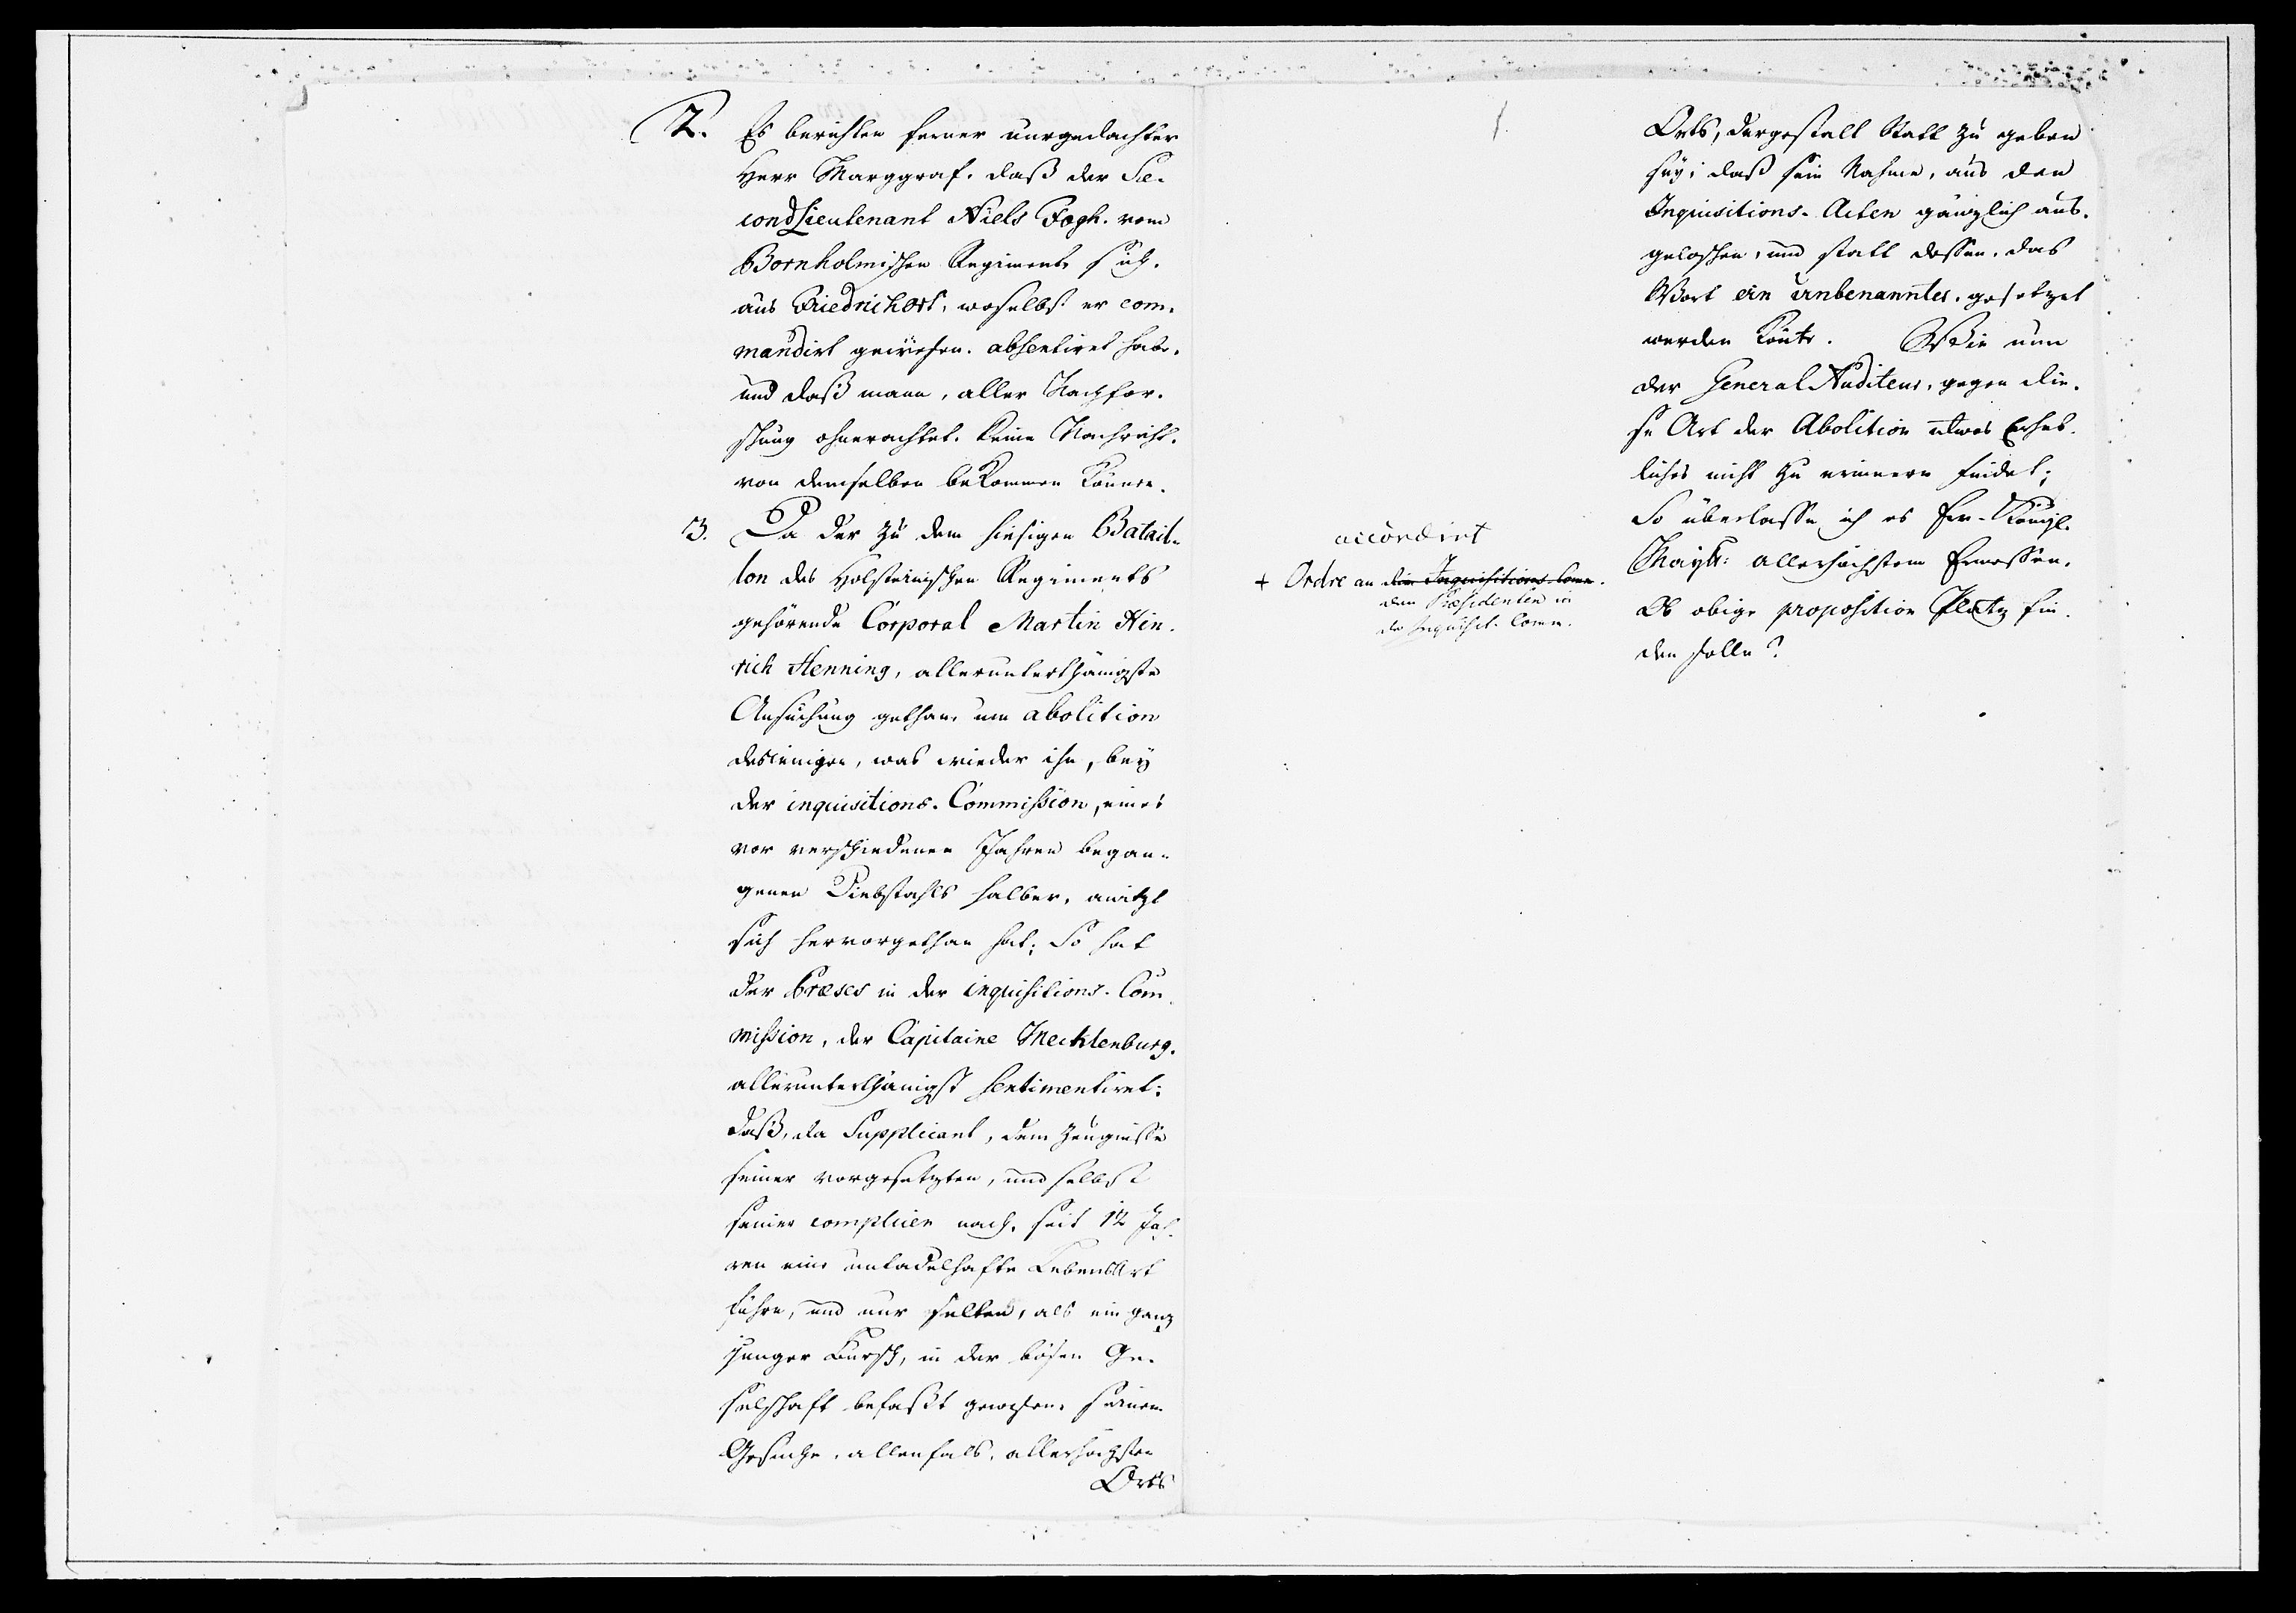 2. Es berichten ferner nurgedachter
Herr Marggraf. daß der Se-
cond Lieutenant Niels Fogh. vom
Bornholmischen Regiment sich.
aus Friedrichort, woselbst er com-
mandirt gewesen. absentiret habe,
und daß mann, aller Nachfor-
schung ohnerachtet. keine Nachricht.
von demselben bekommen könne.
3. Da der zu dem hiesigen Batail-
lon des Holsteinischen Regiments
gehörende Corporal Martin Hin-
rich Henning, allerunterthänigste
Ansuchung gethan, um abolition
desienigen, was wieder ihn, bey
der inquisitions-Commißion, eines
vor verschiedenen Jahren began-
genen Diebstahls halber, anitzt
sich hervorgethan hat; So hat
der Præses in der inquisitions-Com-
mißion, der Capitaine Mecklenburg.
allerunterthänigst sentimentiret:
daß, da Supplicant, dem Zeugniße
seiner vorgesetzten, und selbst
seiner complicen nach, seit 12 Jah-
ren eine untadelhafte LebensArt
führe, und nur selten, als ein ganz
junger Bursch, in der bösen Ge-
selschaft befaßt gewesen, seinem
Gesuche, allenfals, allerhöchsten
Orts
accordirt
+ Ordre an die Inquisitions-Comm.
den Præsidenten in
der Inquisit. Comm.
Orts, dergestalt Statt zu geben
sey; daß sein Nahme, aus den
Inquisitions-Acten gänzlich aus-
geloschen, und statt deßen, das
Wort ein unbenannter, gesetzet
werden könte. Wie nun
der General Auditeur, gegen die-
se Art der Abolition etwas Erheb-
liches nicht zu erinnern findet;
So überlaße ich es Ew. Königl.
Mayt: allerhöchstem Ermeßen,
Ob obige proposition Platz fin-
den solle?